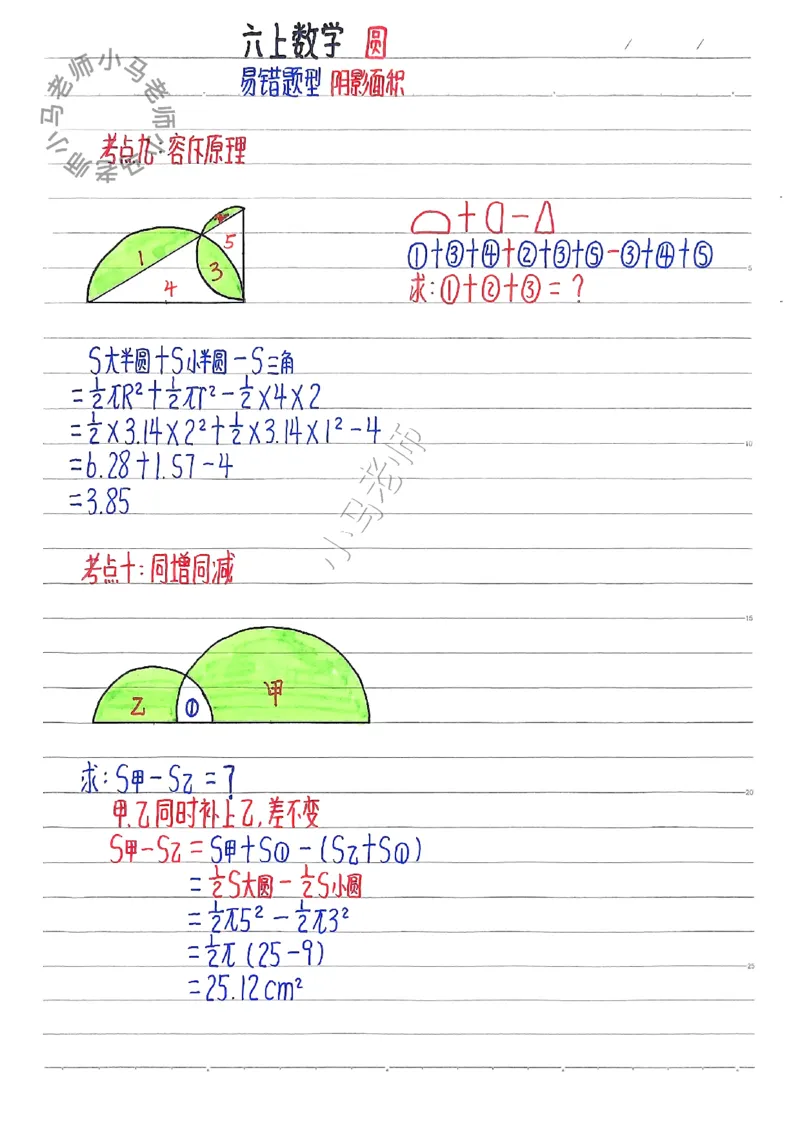 六上数学 圆
易错题型 阴影面积
小马老师小马老师小马老师
考点九:容斥原理
1
2
3
4
5
⌓+D-△
①+③+④+②+③+⑤-③+④+⑤
求:①+②+③=?
S大半圆+S小半圆-S三角
=½πR²+½πr²-½×4×2
=½×3.14×2²+½×3.14×1²-4
=6.28+1.57-4
=3.85
小马老师
考点十:同增同减
乙 ① 甲
求:S甲-S乙=?
甲、乙同时补上乙,差不变
S甲-S乙=S甲+S①-(S乙+S①)
=½S大圆-½S小圆
=½π5²-½π3²
=½π(25-9)
=25.12cm²
5
10
15
20
25